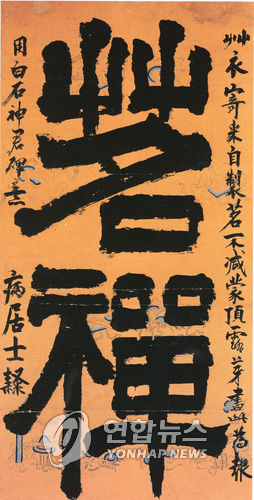 艸衣寄來自製茗不減蒙頂露芽書此爲報
茗禪
用白石神君碑意 病居士隸
연합뉴스
YONHAP NEWS